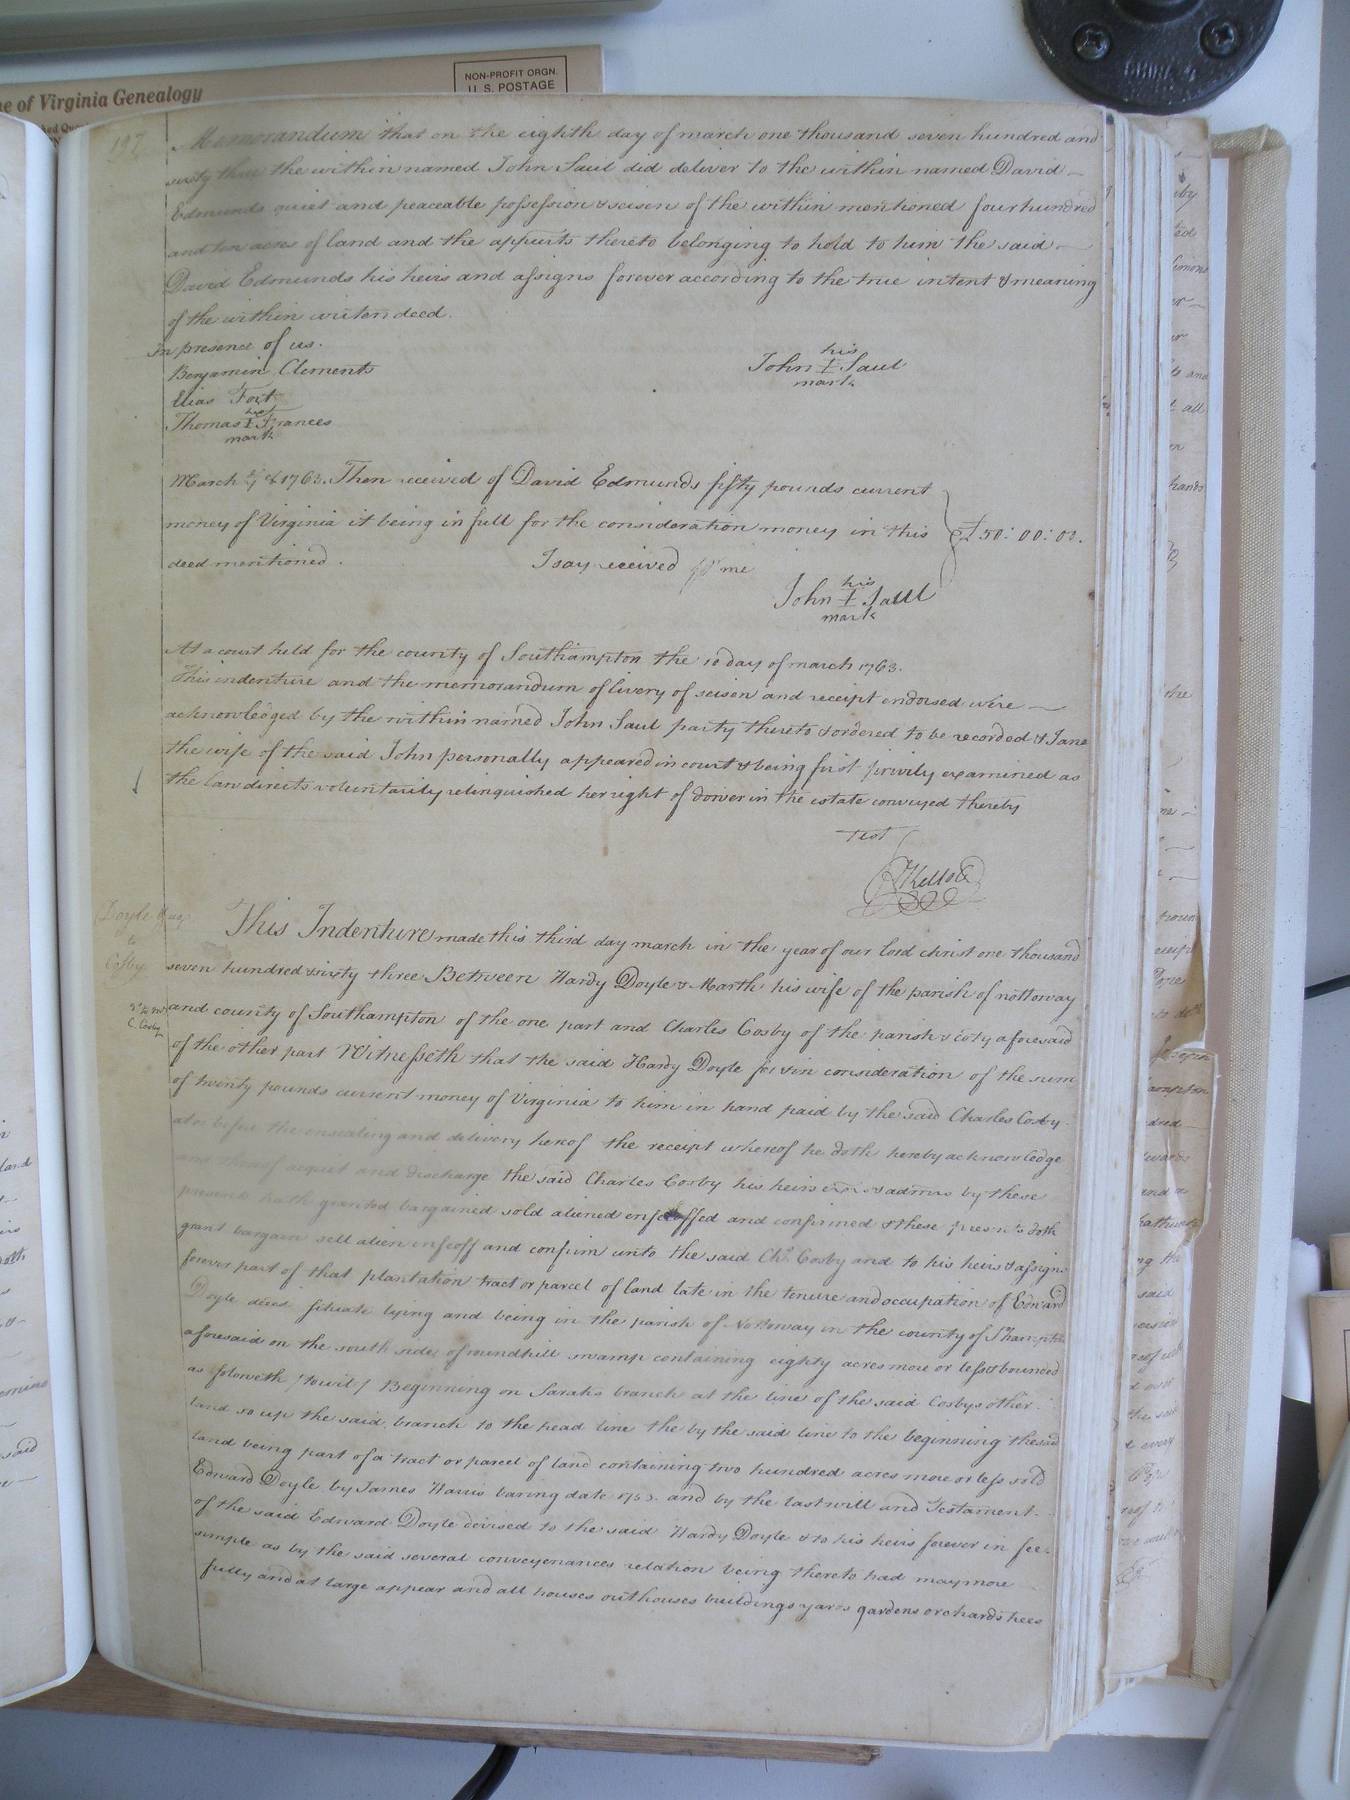 e of Virginia Genealogy
NON-PROFIT ORGN.
U. S. POSTAGE
197
Memorandum that on the eighth day of march one thousand seven hundred and
sixty three the within named John Saul did deliver to the within named David
Edmunds quiet and peaceable possession & seisen of the within mentioned four hundred
and ten acres of land and the appurts thereto belonging to hold to him the said
David Edmunds his heirs and assigns forever according to the true intent & meaning
of the within writen deed.
In presence of us.
Benjamin Clements
Elias Fort
Thomas I Frances
mark
his
John I Saul
mark
March 1763. Then received of David Edmunds fifty pounds current
money of Virginia it being in full for the consideration money in this
deed mentioned.
£50:00:00.
I say received me
his
John I Saul
mark
At a court held for the county of Southampton the 10 day of march 1763.
This indenture and the memorandum of livery of seisen and receipt endorsed were
acknowledged by the within named John Saul party thereto & ordered to be recorded & Jane
the wife of the said John personally appeared in court & being first privily examined as
the law directs voluntarily relinquished her right of dower in the estate conveyed thereby
Test
Doyle &ux
to
Cosby
C. Cosby
This Indenture made this third day march in the year of our lord christ one thousand
seven hundred & sixty three Between Hardy Doyle & Marth his wife of the parish of nottoway
and county of Southampton of the one part and Charles Cosby of the parish & coty aforesaid
of the other part Witnesseth that the said Hardy Doyle for & in consideration of the sum
of twenty pounds current money of Virginia to him in hand paid by the said Charles Cosby
at or before the ensealing and delivery hereof the receipt whereof he doth hereby acknowledge
and thereof acquit and discharge the said Charles Cosby his heirs & admrs by these
presents hath granted bargained sold aliened enfeoffed and confirmed & these presents doth
grant bargain sell alien enfeoff and confirm unto the said Chs. Cosby and to his heirs & assigns
forever part of that plantation tract or parcel of land late in the tenure and occupation of Edward
Doyle situate lying and being in the parish of Nottoway in the county of
aforesaid on the south side of roundhill swamp containing eighty acres more or less & bounded
as followeth /towit/ Beginning on Sarahs branch at the line of the said Cosbys other
land so up the said branch to the head line the by the said line to the beginning the said
land being part of a tract or parcel of land containing two hundred acres more or less sold
Edward Doyle by James Harris baring date and by the last will and Testament
of the said Edward Doyle devised to the said Hardy Doyle & to his heirs forever in fee
simple as by the said several conveyenances relation being thereto had may more
fully and at large appear and all houses outhouses buildings yards gardens orchards trees